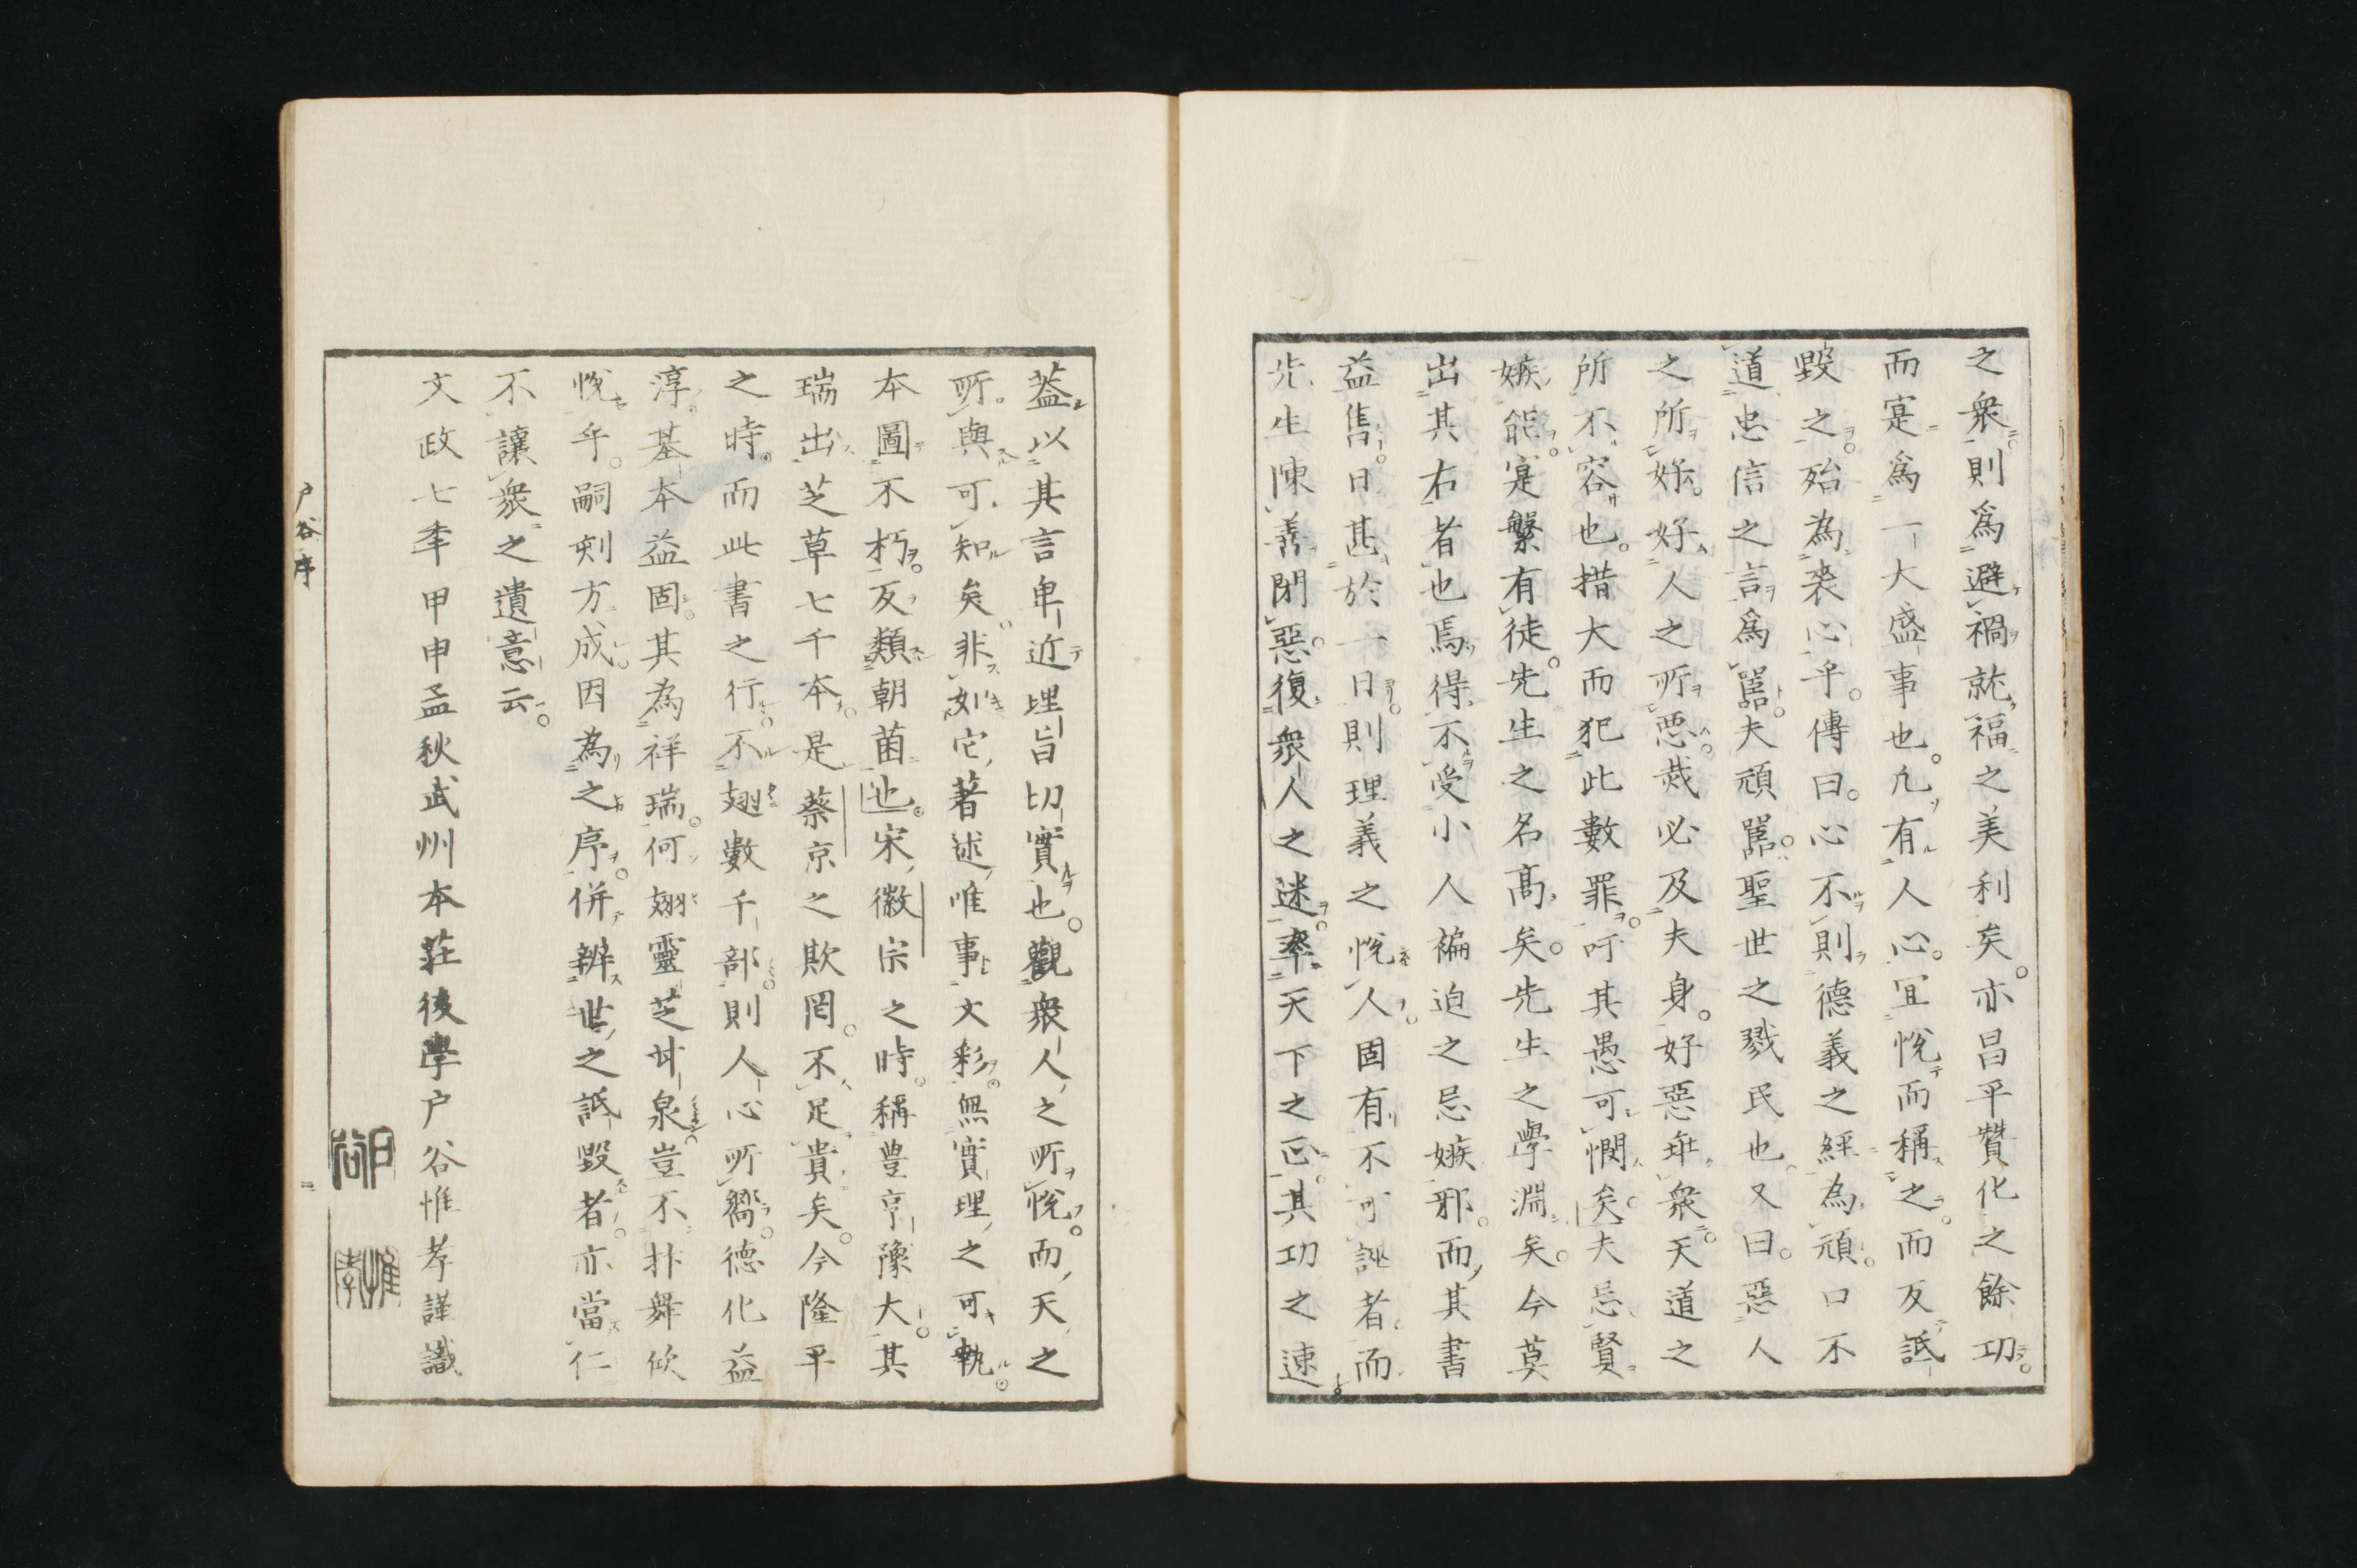 之衆則爲避禍就福之美利矣亦昌平贊化之餘功
而寔爲一大盛事也凢有人心冝悅而稱之而反詆
毀之殆為喪心乎傳曰心不則德義之經為頑口不
道忠信之言爲嚚夫頑嚚聖世之戮民也又曰惡人
之所好好人之所惡烖必及夫身好惡乖衆天道之
所不容也措大而犯此數罪吁其愚可憫矣夫忌賢
嫉能寔繁有徒先生之名髙矣先生之學淵矣今莫
出其右者也焉得不受小人褊迫之忌嫉邪而其書
益售日甚於一日則理義之悅人固有不可誣者而
先生陳善閉惡復衆人之迷率天下之正其功之速
葢以其言卑近理旨切實也觀衆人之所悅而天之
所與可知矣非如它著述唯事文彩無實理之可執
本圖不朽反類朝菌也宋徽宗之時稱豊亨豫大其
瑞出芝草七千本是蔡京之欺罔不足貴矣今隆平
之時而此書之行不翅數千部則人心所嚮德化益
淳基本益固其為祥瑞何翅靈芝甘泉豈不抃舞欣
悅乎嗣刻方成因為之序併辨世之詆毀者亦當仁
不讓衆之遺意云
文政七年甲申孟秋武州本莊後學戸谷惟孝謹識
戸谷
惟孝
戸谷序
二